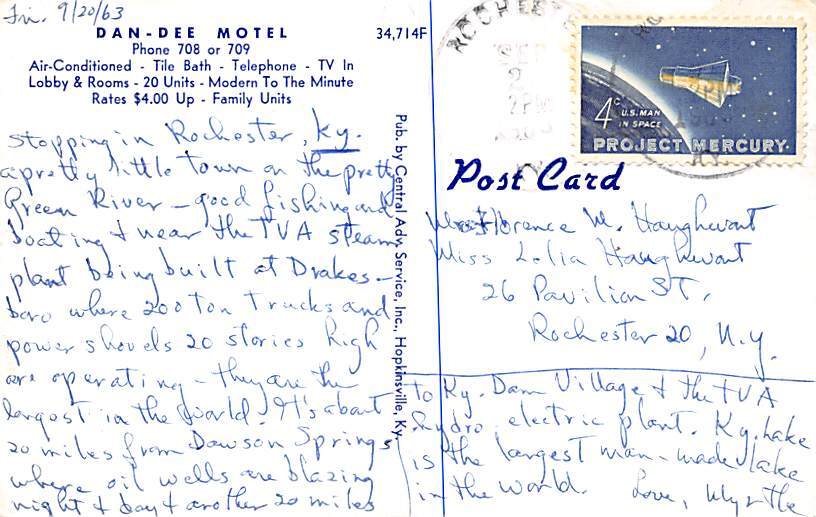 Fri. 9/20/63
DAN-DEE MOTEL
Phone 708 or 709
34,714F
Air-Conditioned - Tile Bath - Telephone - TV In
Lobby & Rooms - 20 Units - Modern To The Minute
Rates $4.00 Up - Family Units
Stopping in Rochester, Ky.
a pretty little town on the pretty
Green River - good fishing and
boating & near the TVA steam
plant being built at Drakes-
boro where 200 ton trucks and
power shovels 20 stories high
are operating - they are the
largest in the world. It's about
20 miles from Dawson Springs
where oil wells are blazing
night & day & another 20 miles
Pub. by Central Adv. Service, Inc., Hopkinsville, Ky.
ROCHESTE
SEP
2
PM
KY
4c U.S. MAN
IN SPACE
PROJECT MERCURY
Post Card
Florence M. Haughwout
Miss Lelia Haughwout
26 Pavilion ST.
Rochester 20, N.Y.
to Ky. Dam Village & the TVA
hydro electric plant. Ky. Lake
is the largest man-made lake
in the world. Love, Myrtle